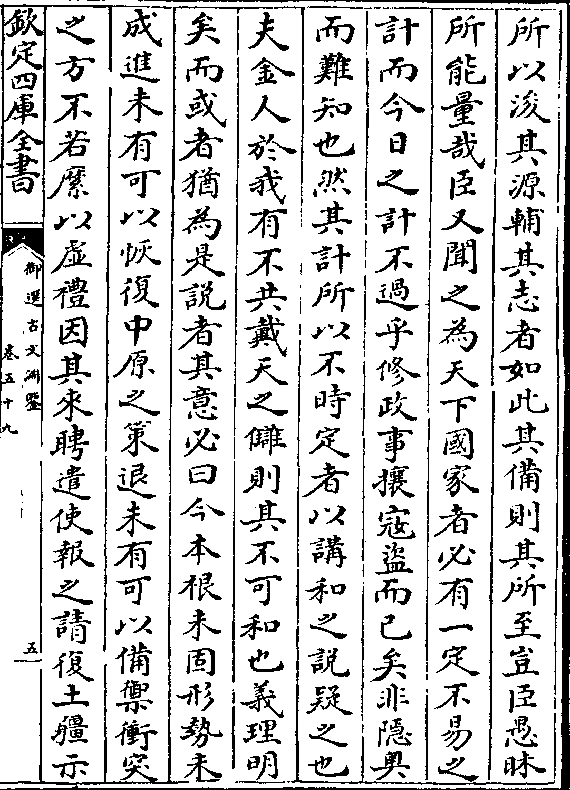 所以浚其源輔其志者如此其備則其所至豈臣愚昧
所能量哉臣又聞之為天下國家者必有一定不易之
計而今日之計不過乎修政事攘寇盜而已矣非隱奥
而難知也然其計所以不時定者以講和之說疑之也
夫金人於我有不共戴天之讎則其不可和也義理明
矣而或者猶為是說者其意必曰今本根未固形勢未
成進未有可以恢復中原之策退未有可以備禦衝突
之方不若縻以虛禮因其來聘遣使報之請復土疆示
欽定四庫全書
御選古文淵鑒
卷五十九
五